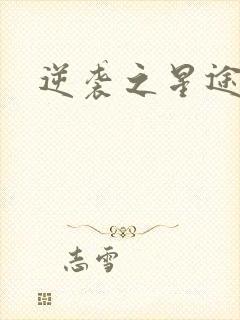 逆袭之星途
志雪